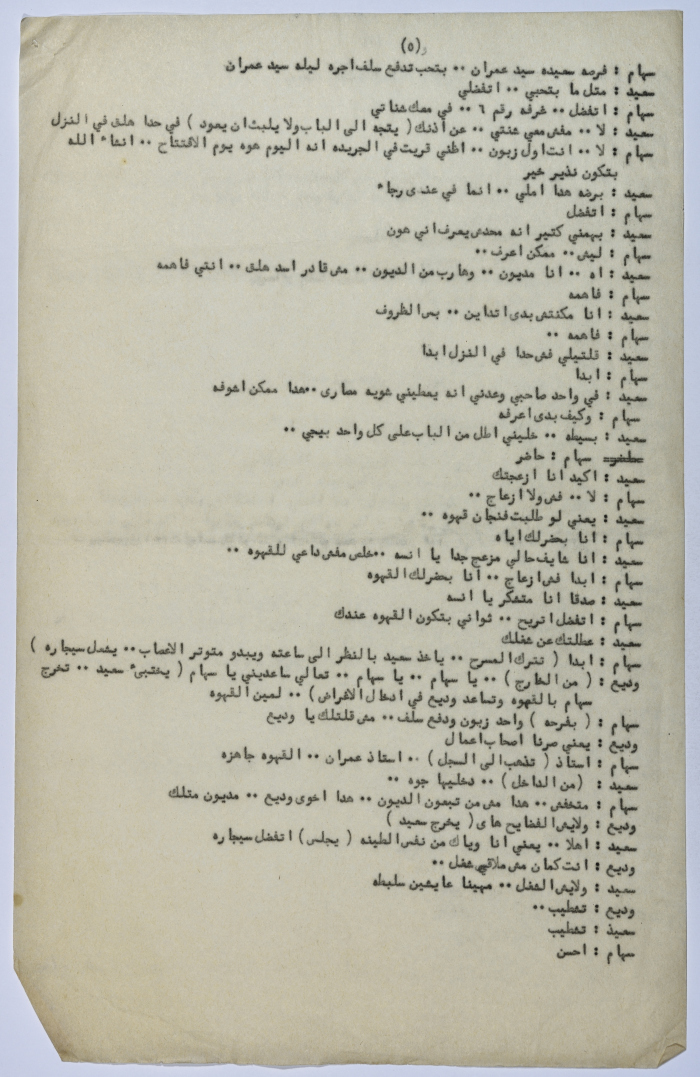 (٥)
سهام : فرصه سعيده سيد عمران ٠٠ بتحب تدفع سلف اجره ليله سيد عمران
سعيد : متل ما بتحبي ٠٠ اتفضلي
سهام : اتفضل ٠٠ غرفه رقم ٦ ٠٠ في معك شناتي
سعيد : لا ٠٠ مفش معي شنتي ٠٠ عن اذنك ( يتجه الى الباب ولا يلبث ان يعود ) في حدا هلق في النزل
سهام : لا ٠٠ انت اول زبون ٠٠ اظني قريت في الجريده انه اليوم هوه يوم الافتتاح ٠٠ انشاء الله
بتكون نذير خير
سعيد : برضه هدا املي ٠٠ انما في عندى رجاء
سهام : اتفضل
سعيد : بهمني كتير انه محدى يعرف اني هون
سهام : ليش ٠٠ ممكن اعرف ٠٠
سعيد : اه ٠٠ انا مديون ٠٠ وهارب من الديون ٠٠ مش قادر اسد هلق ٠٠ انتي فاهمه
سهام : فاهمه
سعيد : انا مكنتش بدى اتداين ٠٠ بس الظروف
سهام : فاهمه ٠٠
سعيد : قلتيلي فش حدا في النزل ابدا
سهام : ابدا
سعيد : في واحد صاحبي وعدني انه يعطيني شويه مصارى ٠٠ هدا ممكن اشوفه
سهام : وكيف بدى اعرفه
سعيد : بسيطه ٠٠ خليني اطل من الباب على كل واحد بيجي ٠٠
سهام : حاضر
سعيد : اكيد انا ازعجتك
سهام : لا ٠٠ فش ولا ازعاج ٠٠
سعيد : يعني لو طلبت فنجان قهوه ٠٠
سهام : انا بحضرلك اياه
سعيد : انا شايف حالي مزعج جدا يا انسه ٠٠ خلص مفش داعي للقهوه ٠٠
سهام : ابدا فش ازعاج ٠٠ انا بحضرلك القهوه
سعيد : صدقا انا متشكر يا انسه
سهام : اتفضل اتريح ٠٠ ثواني بتكون القهوه عندك
سعيد : عطلتك عن شغلك
سهام : ابدا ( تترك المسرح ٠٠ ياخذ سعيد بالنظر الى ساعته ويبدو متوتر الاعصاب ٠٠ يشعل سيجاره )
وديع : ( من الخارج ) ٠٠ يا سهام ٠٠ يا سهام ٠٠ تعالي ساعديني يا سهام ( يختبىء سعيد ٠٠ تخرج
سهام بالقهوه وتساعد وديع في ادخال الاغراض ) ٠٠ لمين القهوه
سهام : ( بفرحه ) واحد زبون ودفع سلف ٠٠ مش قلتلك يا وديع
وديع : يعني صرنا اصحاب اعمال
سهام : استاذ ( تذهب الى السجل ) ٠٠ استاذ عمران ٠٠ القهوه جاهزه
سعيد : ( من الداخل ) ٠٠ دخليها جوه ٠٠
سهام : متخفش ٠٠ هدا مش من تبعون الديون ٠٠ هدا اخوى وديع ٠٠ مديون متلك
وديع : ولايش الفضايح هاى ( يخرج سعيد )
سعيد : اهلا ٠٠ يعني انا وياك من نفس الطينه ( يجلس ) اتفضل سيجاره
وديع : انت كمان مش ملاقي شغل ٠٠
سعيد : ولايش الشغل ٠٠ مهينا عايشين سلبطه
وديع : تشطيب ٠٠
سعيذ : تشطيب
سهام : احسن